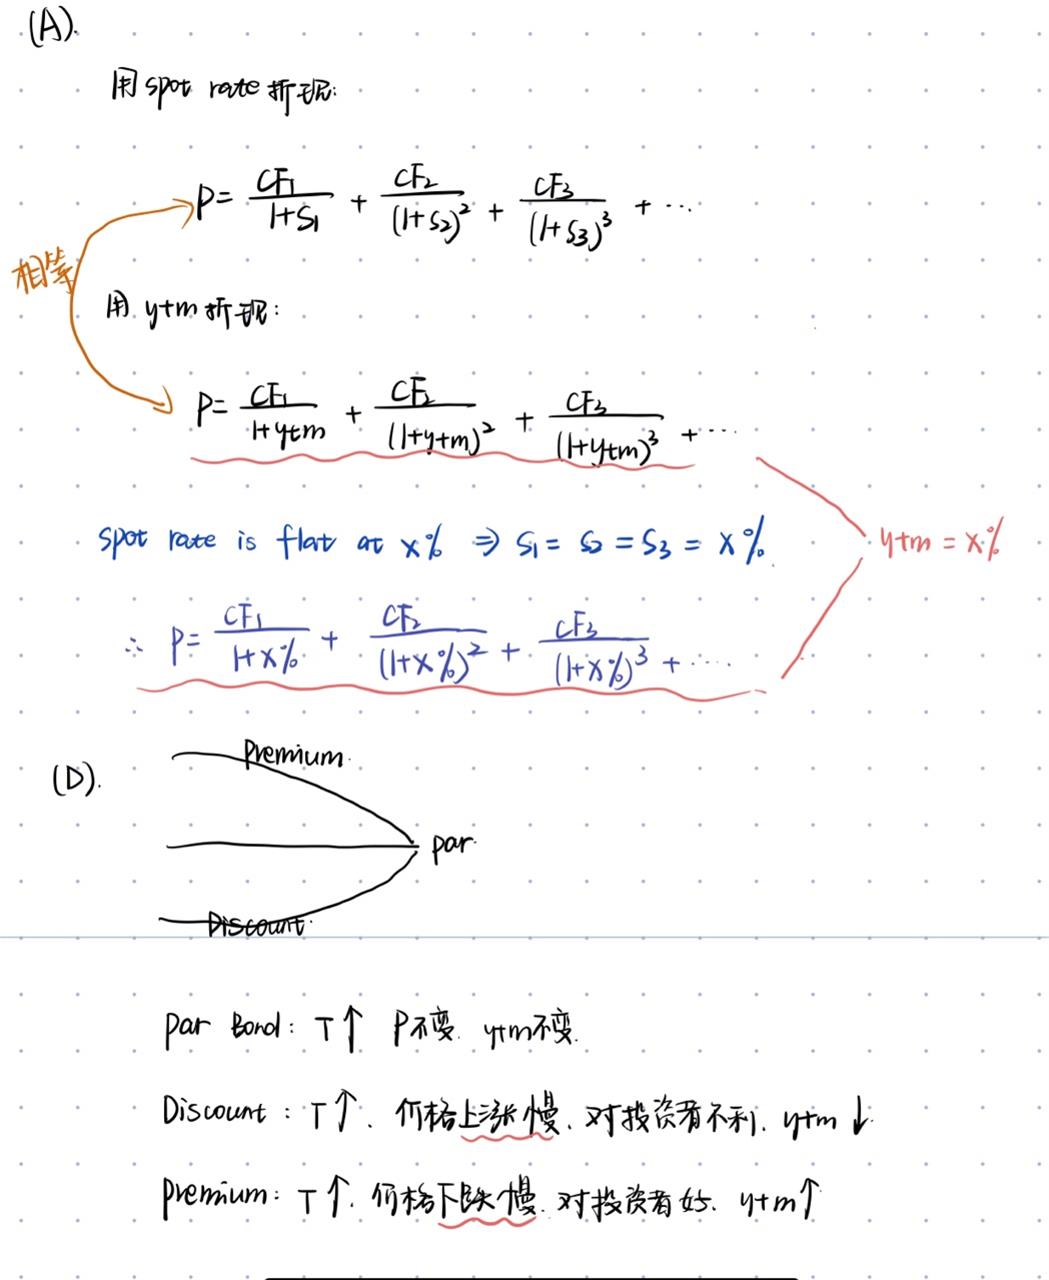 (A).
用 spot rate 折现:
P= CF₁/(1+S₁) + CF₂/(1+S₂)² + CF₃/(1+S₃)³ + ...
相等
用 ytm 折现:
P= CF₁/(1+ytm) + CF₂/(1+ytm)² + CF₃/(1+ytm)³ + ...
spot rate is flat at x% ⇒ S₁ = S₂ = S₃ = x%.
ytm = x%
∴ P= CF₁/(1+x%) + CF₂/(1+x%)² + CF₃/(1+x%)³ + ....
(D).
Premium
par
Discount
par Bond: T↑ P不变. ytm不变.
Discount: T↑. 价格上涨慢、对投资者不利. ytm↓
premium: T↑. 价格下跌慢. 对投资者好. ytm↑